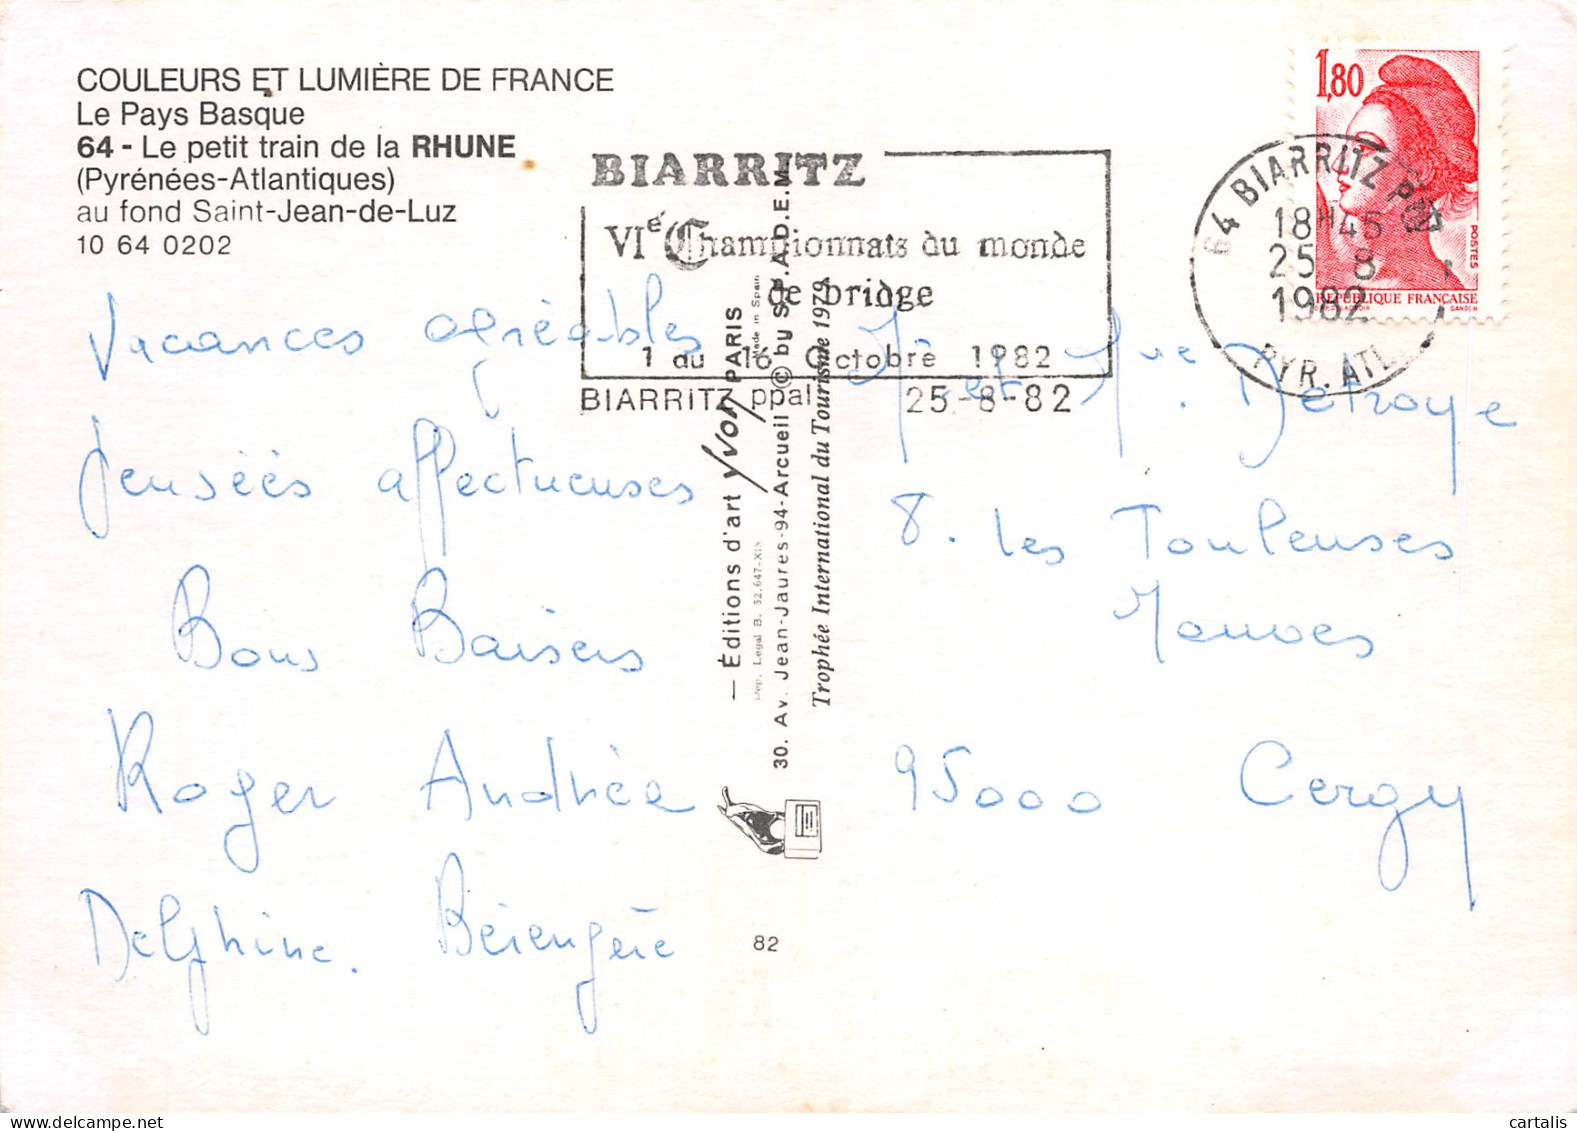 COULEURS ET LUMIÈRE DE FRANCE
Le Pays Basque
64 - Le petit train de la RHUNE
(Pyrénées-Atlantiques)
au fond Saint-Jean-de-Luz
10 64 0202
Vacances agréables
Pensées affectueuses
Bons Baisers
Roger Andrée
Delphine. Bérengère
BIARRITZ
VIe Championnats du monde
de bridge
1 au 16 Octobre 1982
BIARRITZ ppal 25-8-82
— Éditions d'art YVON PARIS
Dép. Légal B. 52.647-XIX Made in Spain
30. Av. Jean-Jaures-94-Arcueil © by S.P.A.D.E.M.
Trophée International du Tourisme 1979
82
1,80
POSTES
REPUBLIQUE FRANÇAISE
GANDON
64 BIARRITZ PPAL
18H45
25 8
1982
PYR. ATL.
M. et Mme. Detroye
8. Les Touleuses
Mauves
95000 Cergy
cartalis